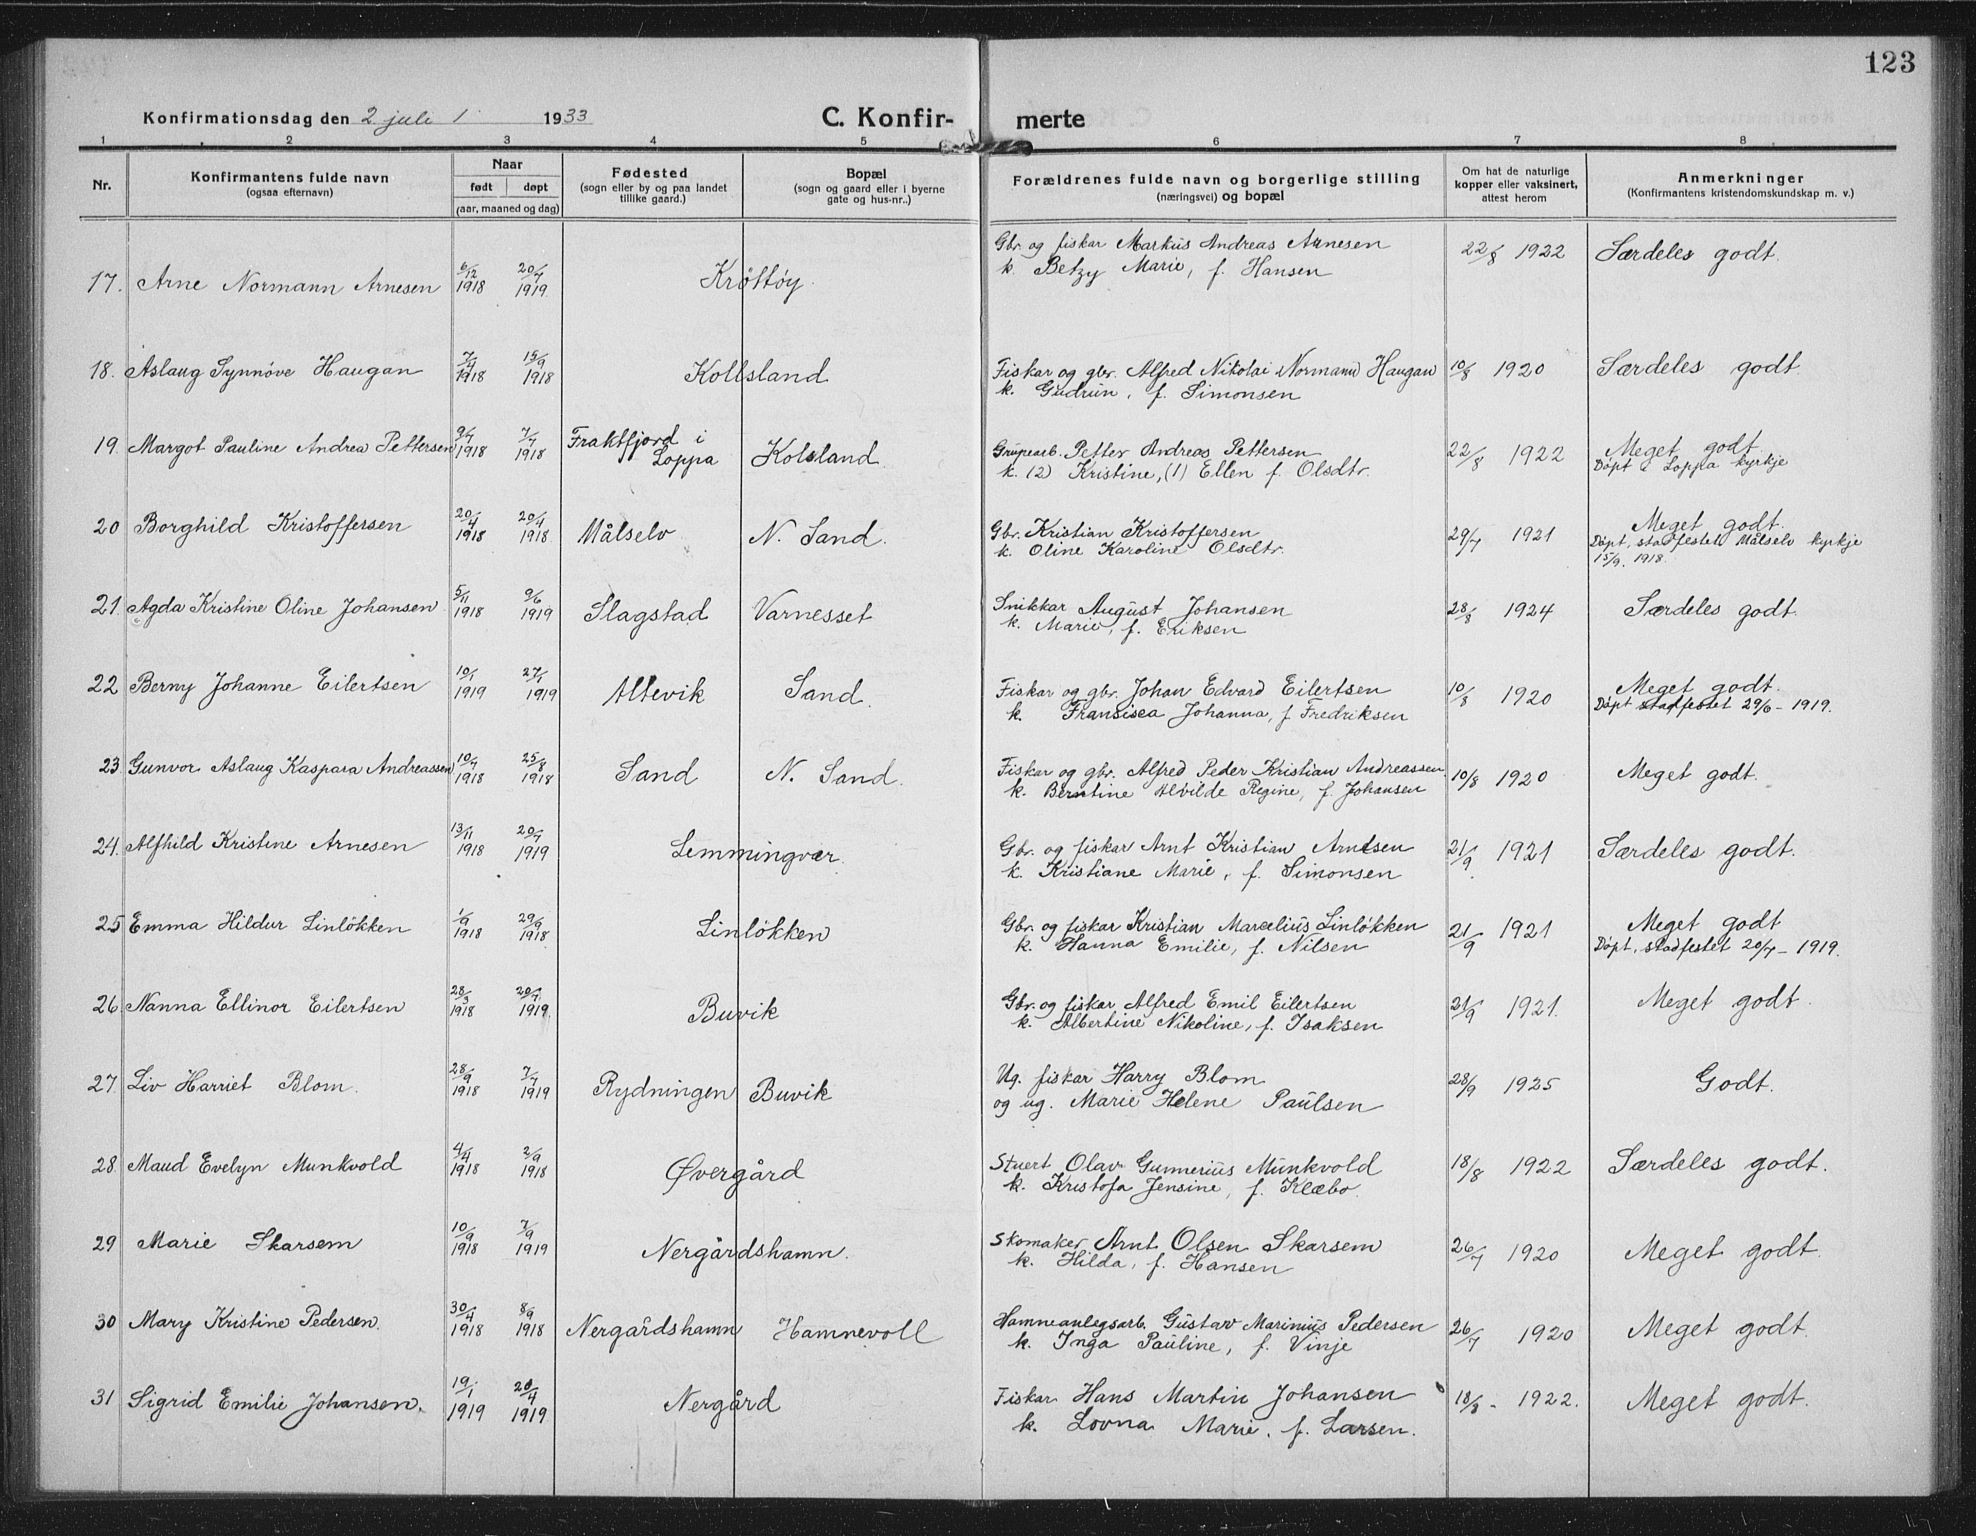 123
Konfirmationsdag den 2 juli 1933
C. Konfirmerte
1 2 3 4 5 6 7 8
Nr. | Konfirmantens fulde navn (ogsaa efternavn) | Naar født døpt (aar, maaned og dag) | Fødested (sogn eller by og paa landet tillike gaard.) | Bopæl (sogn og gaard eller i byerne gate og hus-nr..) | Forældrenes fulde navn og borgerlige stilling (næringsvei) og bopæl | Om hat de naturlige kopper eller vaksinert, attest herom | Anmerkninger (Konfirmantens kristendomskundskap m. v.)
17. Arne Normann Arnesen 6/12 1918 20/7 1919 Krøttøy. Gbr. og fiskar Markus Andreas Arnesen 22/8 1922 Særdeles godt.
k. Betzy Marie, f. Hansen
18. Aslaug Synnøve Haugan 7/4 1918 15/9 1918 Kollsland Fiskar og gbr. Alfred Nikolai Normann Haugan 10/8 1920 Særdeles godt
k. Gudrun, f. Simonsen
19. Margot Pauline Andrea Pettersen 9/4 1918 7/7 1918 Fraktfjord i Loppa Kolsland. Grupearb. Petter Andreas Pettersen 22/8 1922 Meget godt.
k. (2) Kristine, (1) Ellen f. Olsdtr. Døpt i Loppa kyrkje
20 Borghild Kristoffersen 20/4 1918 20/4 1918 Målselv N. Sand. Gbr. Kristian Kristoffersen 29/7 1921 Meget godt.
k. Oline Karoline Olsdtr. Døpt, stadfestet Målselv kyrkje
15/9. 1918.
21. Agda Kristine Oline Johansen 5/11 1918 9/6 1919 Slagstad Varnesset Snikkar August Johansen 28/8 1924 Særdeles godt.
k. Marie, f. Eriksen
22 Berny Johanne Eilertsen 10/1 1919 27/1 1919 Altevik Sand. Fiskar og gbr. Johan Edvard Eilertsen 10/8 1920 Meget godt.
k. Fransisca Johanna, f Fredriksen Døpt stadfestet 29/6 - 1919.
23 Gunvor Aslaug Kaspara Andreassen 10/7 1918 25/8 1918 Sand N. Sand. Fiskar og gbr. Alfred Peder Kristian Andreassen. 10/8 1920 Meget godt.
k. Berntine Alvilde Regine, f. Johansen
24. Alfhild Kristine Arnesen 13/11 1918 20/7 1919 Lemmingvær. Gbr. og fiskar Arnt Kristian Arntsen 21/9 1921 Særdeles godt.
k. Kristiane Marie, f. Simonsen
25 Emma Hildur Linløkken 1/9 1918 29/9 1918 Linløkken Gbr. og fiskar Kristian Marcelius Linløkken 21/9 1921 Meget godt
k. Hanna Emilie, f. Nilsen Døpt, stadfestet 20/7 - 1919.
26 Nanna Ellinor Eilertsen 28/3 1918 20/7 1919. Buvik Gbr. og fiskar Alfred Emil Eilertsen 21/9 1921. Meget godt.
k. Albertine Nikoline, f. Isaksen
27. Liv Harriet Blom. 28/9 1918 7/7 1919 Rydningen Buvik Ug. fiskar Harry Blom 28/9 1925 Godt.
og ug. Marie Helene Paulsen
28. Maud Evelyn Munkvold 4/4 1918 2/9 1918 Øvergård Stuert Olav Gunnerius Munkvold 18/8 1922 Særdeles godt.
k. Kristofa Jensine, f. Klæbo.
29 Marie Skarsem 10/9 1918 7/9 1919 Nergårdshamn. Skomaker Arnt Olsen Skarsem 26/7 1920 Meget godt.
k. Hilda, f. Hansen
30 Mary Kristine Pedersen. 30/4 1918 8/9 1918 Nergårdshamn Hamnevoll Hamneanlegsarb. Gustav Marinius Pedersen 26/7 1920 Meget godt.
k. Inga Pauline, f. Vinje
31 Sigrid Emilie Johansen. 19/1 1919 20/4 1919 Nergård Fiskar Hans Martin Johansen 18/8 - 1922. Meget godt.
k. Lovna Marie, f. Larsen.